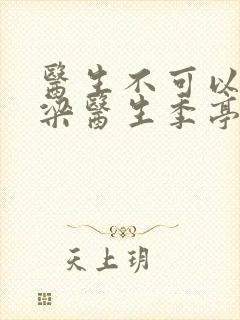 醫生不可以
梁醫生季亭
天上玥